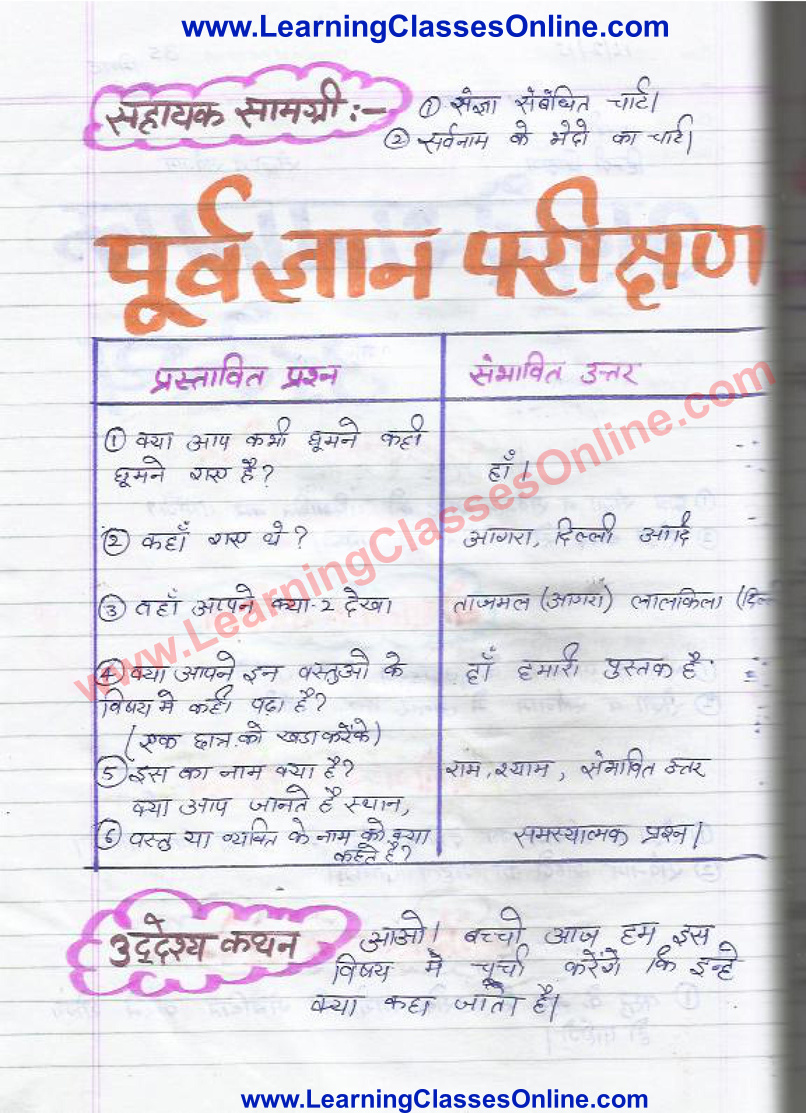 www.LearningClassesOnline.com
सहायक सामग्री :-
① संज्ञा संबंधित चार्ट।
② सर्वनाम के भेदो का चार्ट।
पूर्वज्ञान परीक्षण
प्रस्तावित प्रश्न
संभावित उत्तर
① क्या आप कभी घूमने कही
घूमने गए है?
हाँ।
② कहाँ गए थे?
आगरा, दिल्ली आदि
③ वहाँ आपने क्या-2 देखा।
ताजमल (आगरा) लालकिला (दिल
④ क्या आपने इन वस्तुओ के
विषय मे कही पढ़ा है?
हाँ हमारी पुस्तक है
(एक छात्र को खडा करेंके)
⑤ इस का नाम क्या है?
राम, श्याम, संभावित उत्तर
क्या आप जानते है स्थान,
⑥ वस्तु या व्यक्ति के नाम को क्या
कहते है?
समस्यात्मक प्रश्न।
उद्देश्य कथन
आओ। बच्चो आज हम इस
विषय मे चर्चा करेंगे कि इन्हे
क्या कहा जाता है।
www.LearningClassesOnline.com
www.LearningClassesOnline.com